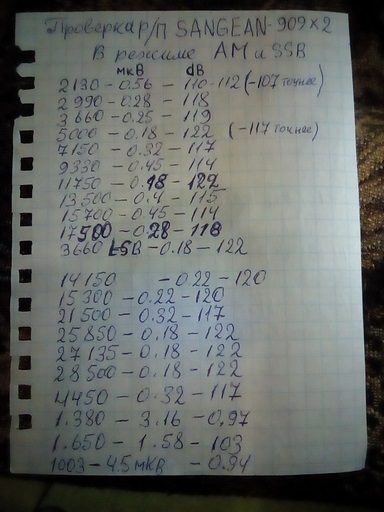 Проверка р/п SANGEAN-909x2
В режиме АМ и SSB
мкВ dB
2130-0.56 - 110-112 (-107 точнее)
2990-0.28 - 118
3660-0.25 - 119
5000-0.18 - 122 (-117 точнее)
7150-0.32-117
9330-0.45-114
11750-0.18-122
13,500-0.4-115
15700-0.45-114
17500-0.28-118
3660 LSB-0.18-122
14150 -0.22-120
15300-0.22-120
21500-0.32-117
25850-0.18-122
27135-0.18-122
28500-0.18-122
4450-0.32-117
1.380-3.16-0.97
1.650-1.58-103
1003-4.5мкв -0.94